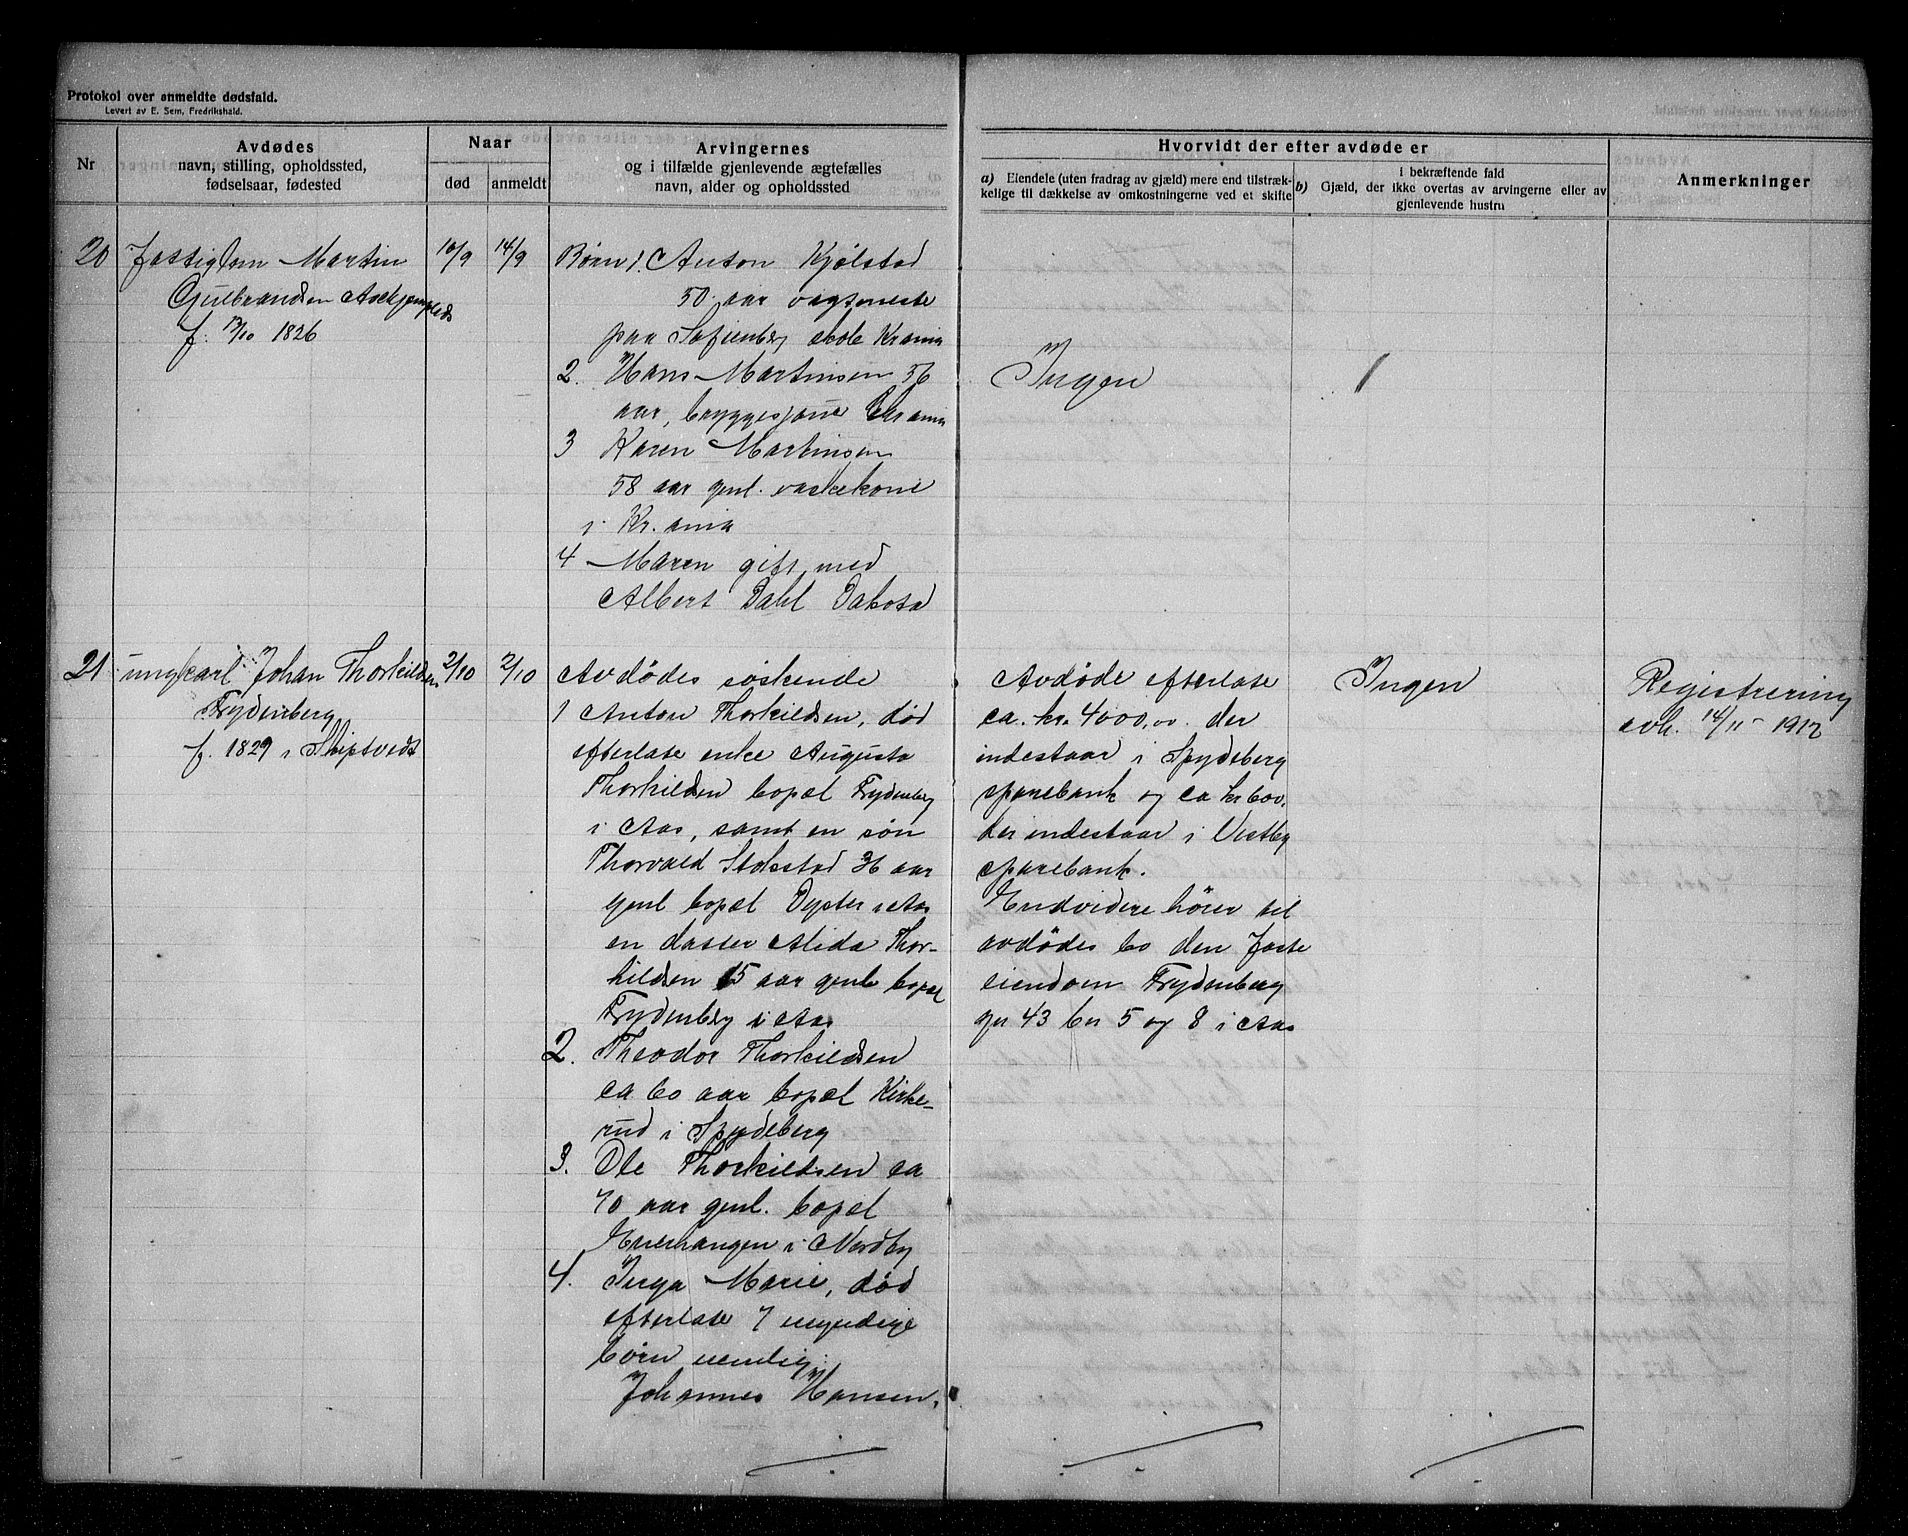 Protokol over anmeldte dødsfald.
Levert av E. Sem, Fredrikshald.
Nr
Avdødes
navn, stilling, opholdssted,
fødselsaar, fødested
Naar
død
anmeldt
Arvingernes
og i tilfælde gjenlevende ægtefælles
navn, alder og opholdssted
Hvorvidt der efter avdøde er
a) Eiendele (uten fradrag av gjæld) mere end tilstræk-
kelige til dækkelse av omkostningerne ved et skifte
i bekræftende fald
b) Gjæld, der ikke overtas av arvingerne eller av
gjenlevende hustru
Anmerkninger
20 Fattiglem Martin 10/9 14/9
Gulbrandsen
f. 12/10 1826
Børn 1. Anton Kjølstad
50 aar vagtmeste
paa Sofienberg skole Kr.ania
2. Hans Martinsen 56
aar, bryggesjaue Chr.ania
3 Karen Martinsen
58 aar genl. vaskekone
i Kr.ania
4 Maren gift med
Albert Dahl Dakota
Ingen
21 ungkarl Johan Thorkildsen 2/10 2/10
Frydenberg
f. 1829 i Skiptvedt
Avdødes søskende
1 Anton Thorkildsen, død
efterlate enke Augusta
Thorkildsen bopæl Frydenberg
i Aas, samt en søn
Thorvald Stokstad 36 aar
genl bopæl Dyster i Aas
en datter Alida Thor-
kildsen 15 aar genl bopæl
Frydenberg i Aas
2. Theodor Thorkildsen
ca 60 aar bopæl Kirke-
rud i Spydeberg
3. Ole Thorkildsen ca
70 aar genl. bopæl
i Nordby
4. Inga Marie, død
efterlate 7 umyndige
børn nemlig:
Johannes Hansen,
Avdøde efterlate
ca. kr. 4000,00 der
indestaar i Spydeberg
sparebank og ca kr 600,
der indestaar i Vestby
sparebank.
Endvidere hører til
avdødes bo den faste
eiendom Frydenberg
gr 43 br 5 og 8 i Aas
Ingen
Registrering
avh. 14/11 - 1912